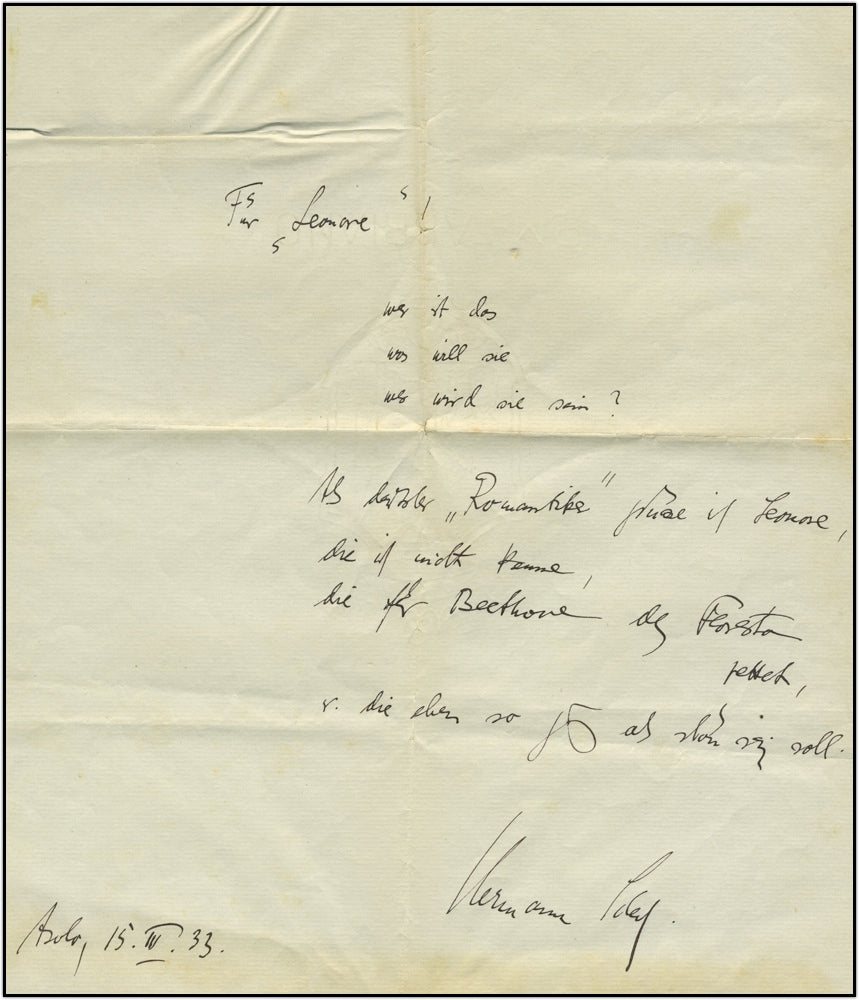 Für "Leonore"!
wer ist das
was will sie
wer wird sie sein?
Als deutscher „Romantiker" grüsse ich Leonore,
die ich nicht kenne,
die für Beethoven den Florestan
rettet,
u. die eben so gut als schön sein soll.
Hermann
Asolo, 15. IV. 33.